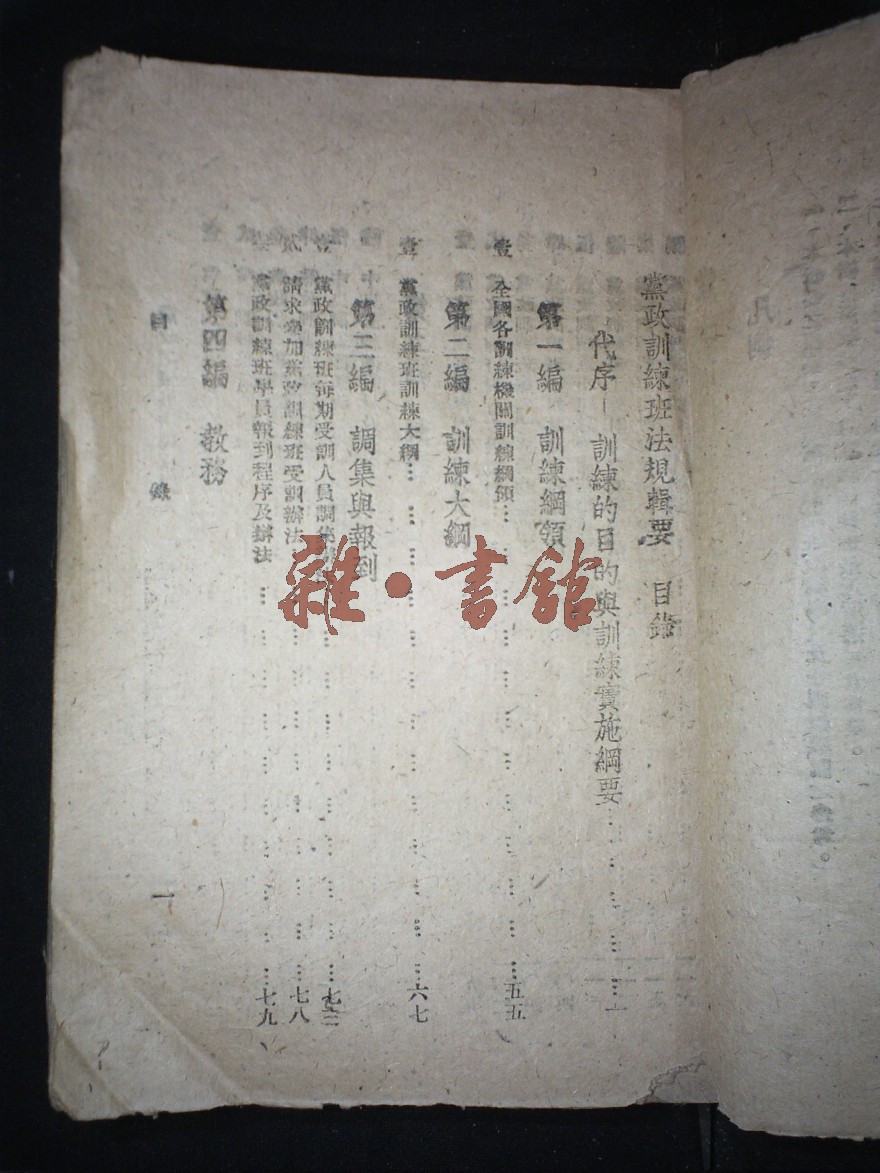 黨政訓練班法規輯要 目錄
代序－訓練的目的與訓練實施綱要…………………一
第一編 訓練綱領
壹 全國各訓練機關訓練綱領…………………五五
第二編 訓練大綱
壹 黨政訓練班訓練大綱…………………六七
第三編 調集與報到
壹 黨政訓練班每期受訓人員調集…………………七三
貳 請求參加黨政訓練班受訓辦法…………………七八
叁 黨政訓練班學員報到程序及辦法…………………七九
第四編 教務
目 錄 一
雜·書舘
凡例